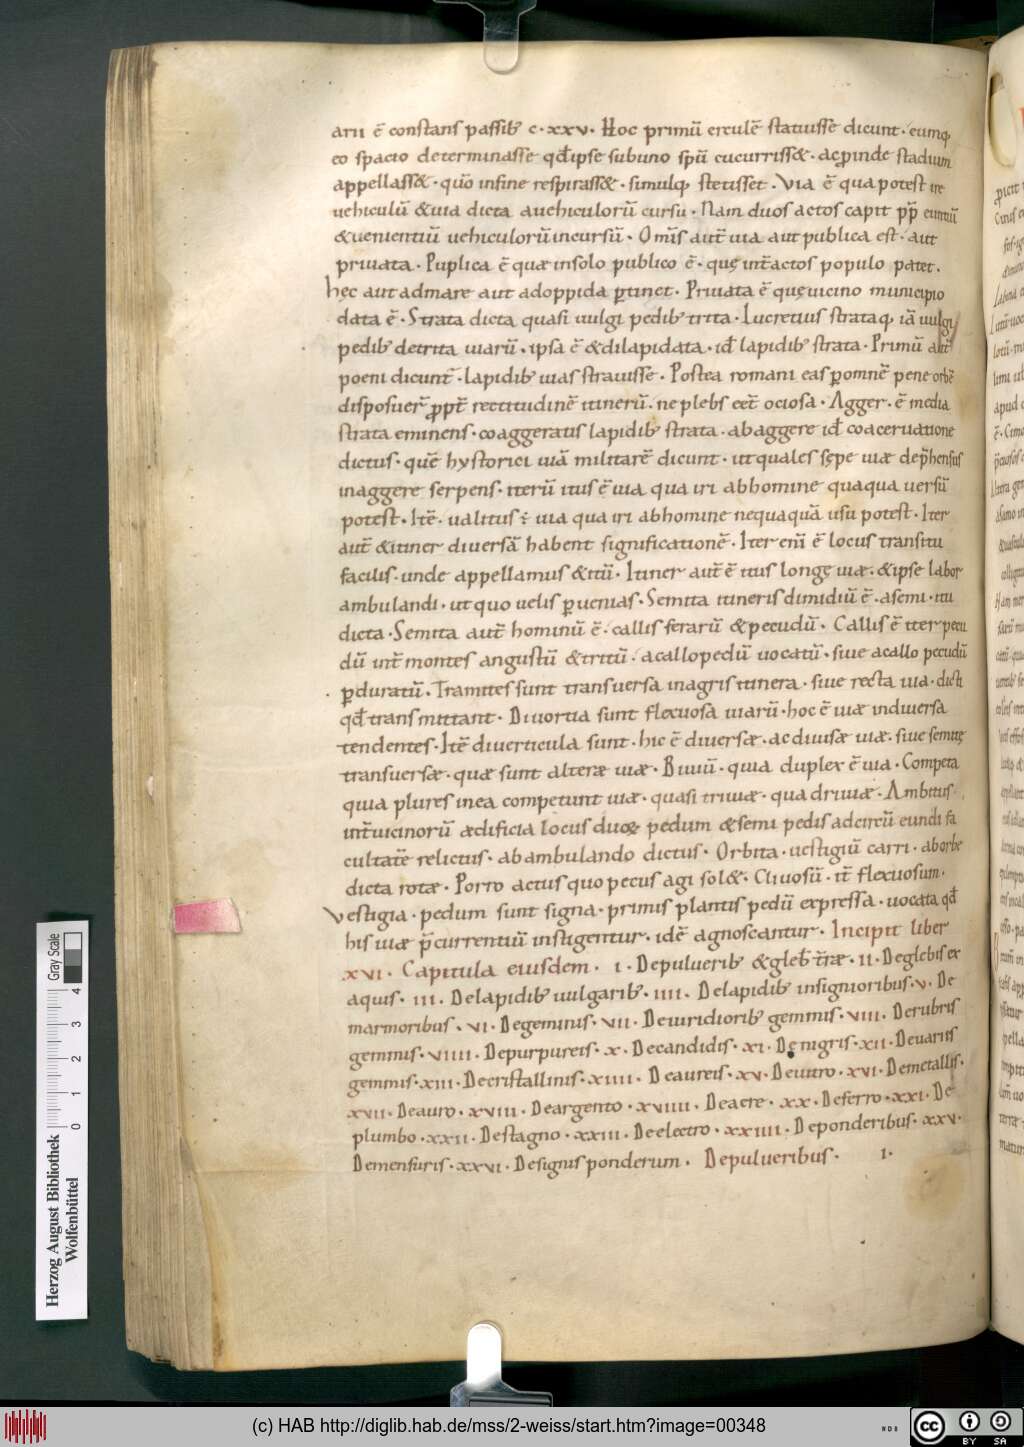 arii ē constans passib; c·xxv· Hoc primū erculē statuisse dicunt· eumq;
eo spacio determinasse qđ ipse sub uno spū cucurriss&· ac ꝓinde stadium
appellass&· quō in fine respirass&· simulq; stetisset· Via ē qua potest ire
uehiculū & uia dicta a uehiculorū cursu· Nam duos actos capit pp̄ euntiū
& uenientiū uehiculorū incursū· Om̄is aut̄ uia aut publica est· aut
priuata· Puplica ē quæ in solo publico ē· quę int̄ actos populo patet·
hęc aut ad mare aut ad oppida ꝑtinet· Priuata ē quę uicino municipio
data ē· Strata dicta quasi uulgi pedib; trita· Lucretius strataq; iā uulgi
pedib; detrita uiarū· ipsa ē & dilapidata· id̄ lapidib; strata· Primū aut̄
poeni dicunt̄· lapidib; uias strauisse· Postea romani eas ꝑ omnē pene orbē
disposuer̄ ꝓpt̄ rectitudinē itinerū· ne plebs eēt ociosa· Agger· ē media
strata eminens· coaggeratis lapidib; strata· ab aggere id̄ coaceruatione
dictus· quē hystorici uiā militarē dicunt· ut quales sępe uiæ dep̄hensus
in aggere serpens· iterū itus ē uia qua iri ab homine quaqua uersū
potest· Itē· ualitus ÷ uia qua iri ab homine nequaquā usu potest· Iter
aut̄ & itiner diuersā habent significationē· Iter eni ē locus transitu
facilis· unde appellamus & itū· Itiner aut̄ ē itus longę uiæ· & ipse labor
ambulandi· ut quo uelis ꝑuenias· Semita itineris dimidiū ē· a semi· itu
dicta· Semita aut̄ hominū ē· callis ferarū & pecudū· Callis ē iter pecu
dū int̄ montes angustū & tritū· a callo pedū uocatū· siue a callo pecudū
ꝑduratū· Tramites sunt transuersa in agris itinera· siue recta uia· dicti
qđ transmittant· Diuortia sunt flexuosa uiarū· hoc ē uiæ in diuersa
tendentes· Itē diuerticula sunt· hic ē diuersæ· ac diuisæ uiæ· siue semitę
transuersæ· quæ sunt alteræ uiæ· Biuiū· quia duplex ē uia· Competa
quia plures in ea competunt uiæ· quasi triuiæ· quadriuiæ· Ambitus·
int̄ uicinorū ædificia locus duoꝝ pedum & semi pedis ad circū eundi fa
cultatē relictus· ab ambulando dictus· Orbita· uestigiū carri· ab orbe
dicta rotæ· Porro actus quo pecus agi sol&· Cliuosū· it̄ flexuosum·
Vestigia· pedum sunt signa· primis plantis pedū expressa· uocata qđ
his uiæ p̄currentiū instigentur· idē agnoscantur· Incipit liber
xvi· Capitula eiusdem· i· De puluerib; & gleb̄ t̄ræ· ii· De glebis ex
aquis· iii· De lapidib; uulgarib;· iiii· De lapidib; insignioribus· v· De
marmoribus· vi· De geminis· vii· De uiridiorib; gemmis· viii· De rubris
gemmis· viiii· De purpureis· x· De candidis· xi· De nigris· xii· De uariis
gemmis· xiii· De cristallinis· xiiii· De aureis· xv· De uitro· xvi· De metallis·
xvii· De auro· xviii· De argento· xviiii· De aere· xx· De ferro· xxi· De
plumbo· xxii· De stagno· xxiii· De electro· xxiiii· De ponderibus· xxv·
De mensuris· xxvi· De signis ponderum· De pulueribus· i·
Herzog August Bibliothek
Wolfenbüttel
0 1 2 3 4
Gray Scale
(c) HAB http://diglib.hab.de/mss/2-weiss/start.htm?image=00348
cc
BY SA